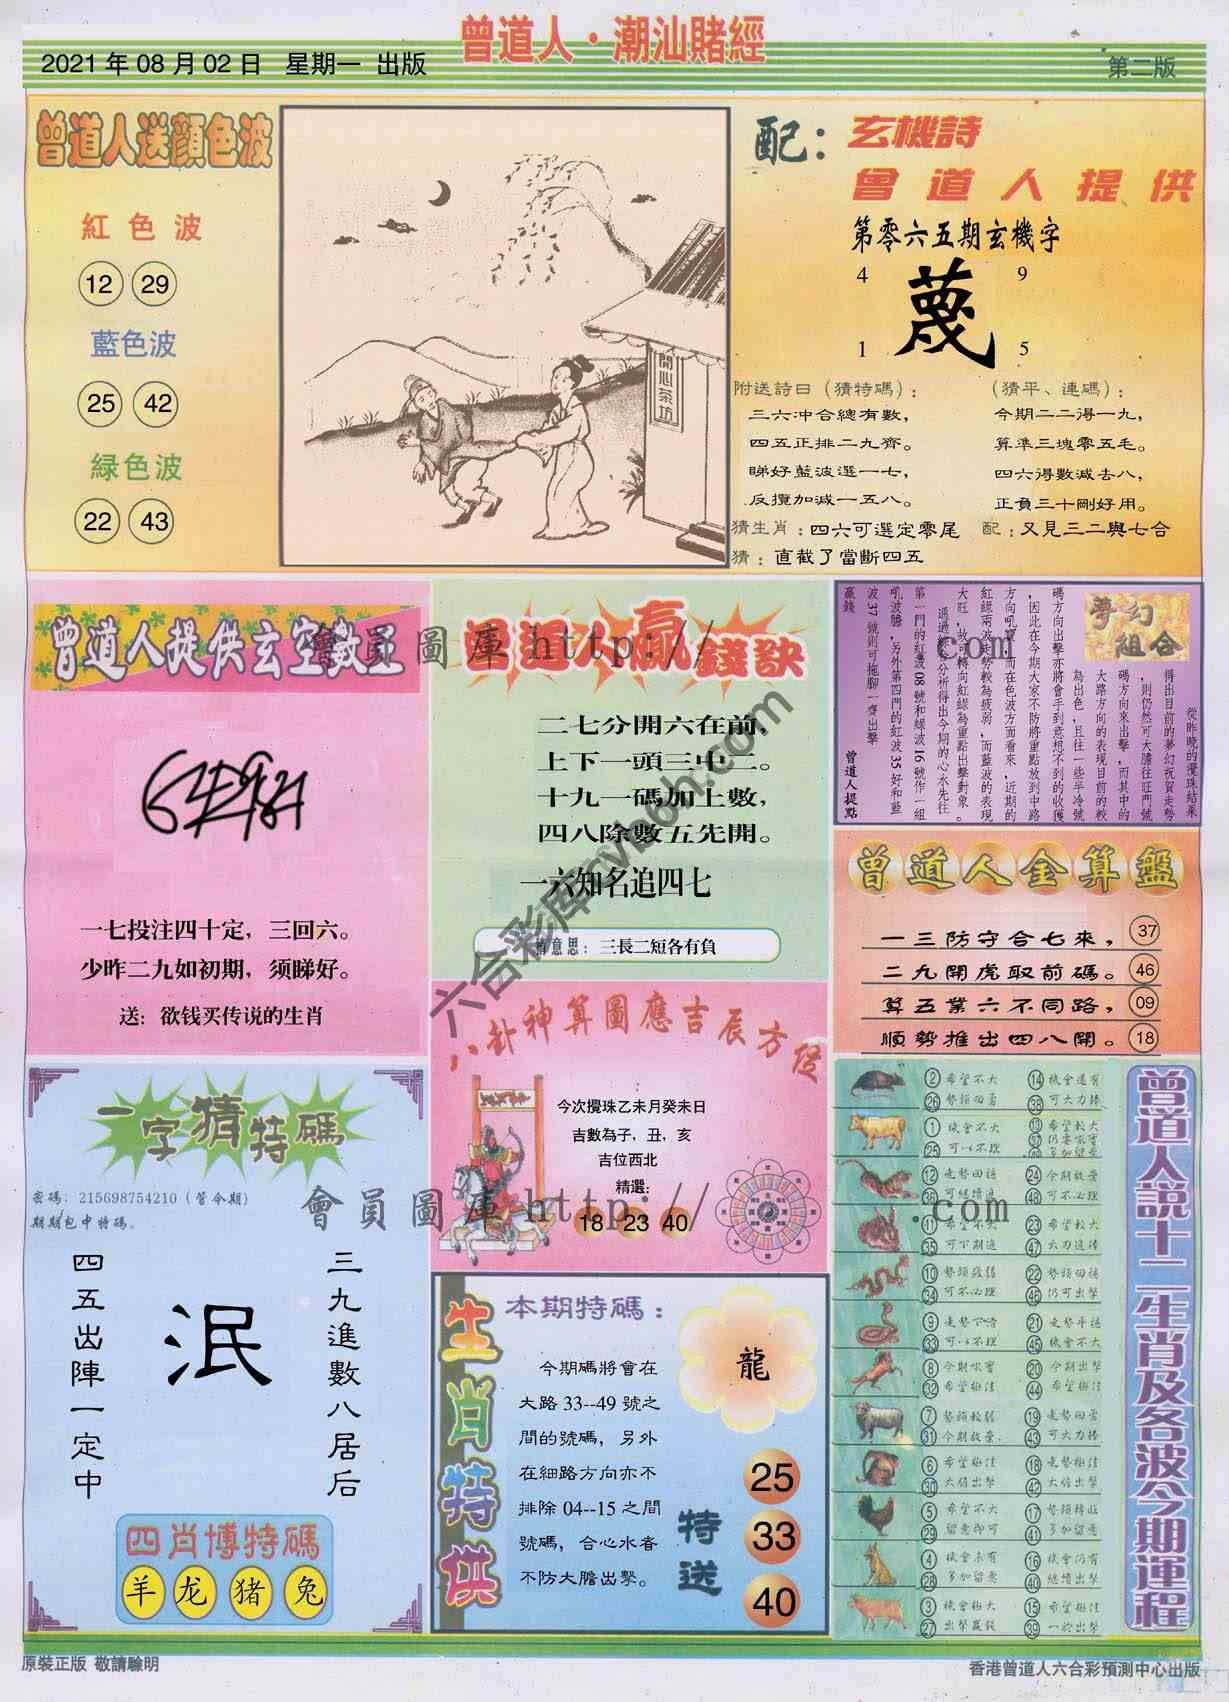 曾道人·潮汕賭經
2021年08月02日 星期一 出版
第二版
曾道人送顔色波
紅色波
12 29
藍色波
25 42
緑色波
22 43
開心茶坊
配：
玄機詩
曾道人提供
第零六五期玄機字
4 9
蔑
1 5
附送詩曰（猜特碼）：
三六冲合總有數，
四五正排二九齊。
睇好藍波選一七，
反攬加減一五八。
（猜平、連碼）：
今期二二得一九，
算準三塊零五毛。
四六得數減去八，
正負三十剛好用。
猜生肖：四六可選定零尾
配：又見三二與七合
猜：直截了當斷四五
曾道人提供玄空數王
會員圖庫 http://
.com
一七投注四十定，三回六。
少昨二九如初期，须睇好。
送：欲钱买传说的生肖
曾道人赢錢訣
二七分開六在前，
上下一頭三中二。
十九一碼加上數，
四八除數五先開。
一六知名追四七
意思：三長二短各有負
六合彩库cvb6h.com
夢幻組合
從昨晚的攪珠結果
得出目前的夢幻祝賀走勢
，則仍然可大膽往旺門號
碼方向來出擊，而其中的
大路方向的表現目前的較
為出色，且往一些半冷號
碼方向出擊亦將會手到意想不到的收獲
，因此在今期大家不防將重點放到中路
方向吼寶，而在色波方面看來，近期的
紅綠兩波走勢較為疲弱，而藍波的表現
大旺，故可轉向紅綠為重點出擊對象。
通過綜合分析得出今期的心水先往
第一門的紅波08號和緑波16號作一組
吼波膽，另外第四門的紅波35好和藍
波37號則可拖腳一齊出擊
曾道人提點
贏錢
曾道人金算盤
一三防守合七來， 37
二九開虎取前碼。 46
算五業六不同路， 09
順勢推出四八開。 18
八卦神算圖應吉辰方位
:
今次攪珠乙未月癸未日
吉數為子，丑，亥
吉位西北
精選：
18 23 40
一字猜特碼
密碼：215698754210（管今期）
期期包中特碼。
會員圖庫 http://
.com
三九進數八居后
泯
四五出陣一定中
四肖博特碼
羊 龙 猪 兔
生肖特供
本期特碼：
龍
今期碼將會在
大路33--49號之
間的號碼，另外
在細路方向亦不
排除04--15之間
號碼，合心水者
不防大膽出擊。
特送
25
33
40
曾道人說十二生肖及各波今期運程
2 希望不大 14 機會還有
26 38 可大力捧
1 機會不大 13 希望較大
25 可以不理 37
12 走勢回穩 24 今期放棄
36 48 可不必理
11 希望不大 23 希望較大
35 可下期追 47 大力追捧
10 勢頭疲弱 22 勢頭回穩
34 可不必理 46 仍可出擊
9 21 走勢平穩
33 可以不理 45 機會不大
8 20 今期出擊
32 希望極佳 44 希望極佳
7 勢頭較弱 19
31 今期放棄 43 可大力捧
6 希望極佳 18 走勢極佳
30 大佰出擊 42 大佰出擊
5 希望不大 17
29 41 多加留意
4 機會未有 16 機會仍有
28 多加留意 40 繼續出擊
3 機會極大 15 希望極佳
27 出擊贏錢 39
原裝正版 敬請騐明
香港曾道人六合彩預測中心出版